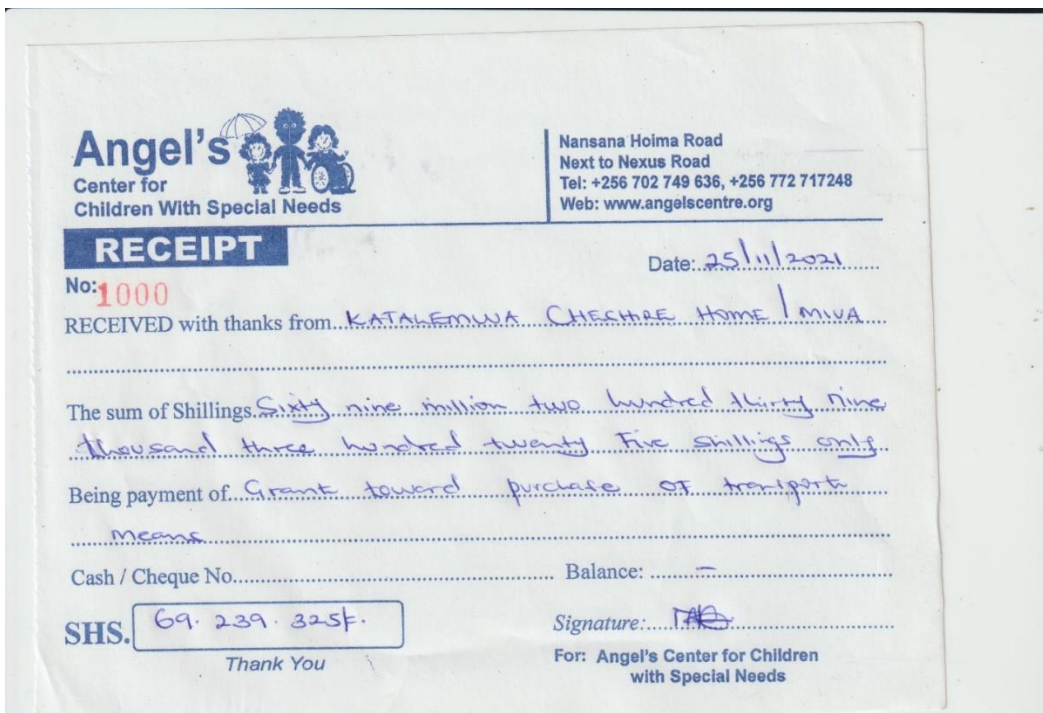 Angel's
Center for
Children With Special Needs
Nansana Hoima Road
Next to Nexus Road
Tel: +256 702 749 636, +256 772 717248
Web: www.angelscentre.org
RECEIPT
Date: 25/11/2021
No: 1000
RECEIVED with thanks from KATALEMWA CHECHIRE HOME / MIVA
The sum of Shillings Sixty nine million two hundred thirty nine
thousand three hundred twenty Five shillings only
Being payment of Grant toward purchase OF transport
means
Cash / Cheque No. Balance: –
SHS. 69.239.325/.
Signature:
Thank You
For: Angel's Center for Children
with Special Needs